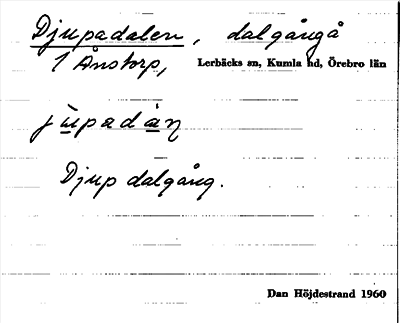 Djupadalen, dalgång å
1 Ånstorp, Lerbäcks sn, Kumla hd, Örebro län
jùpadàn
Djup dalgång.
Dan Höjdestrand 1960